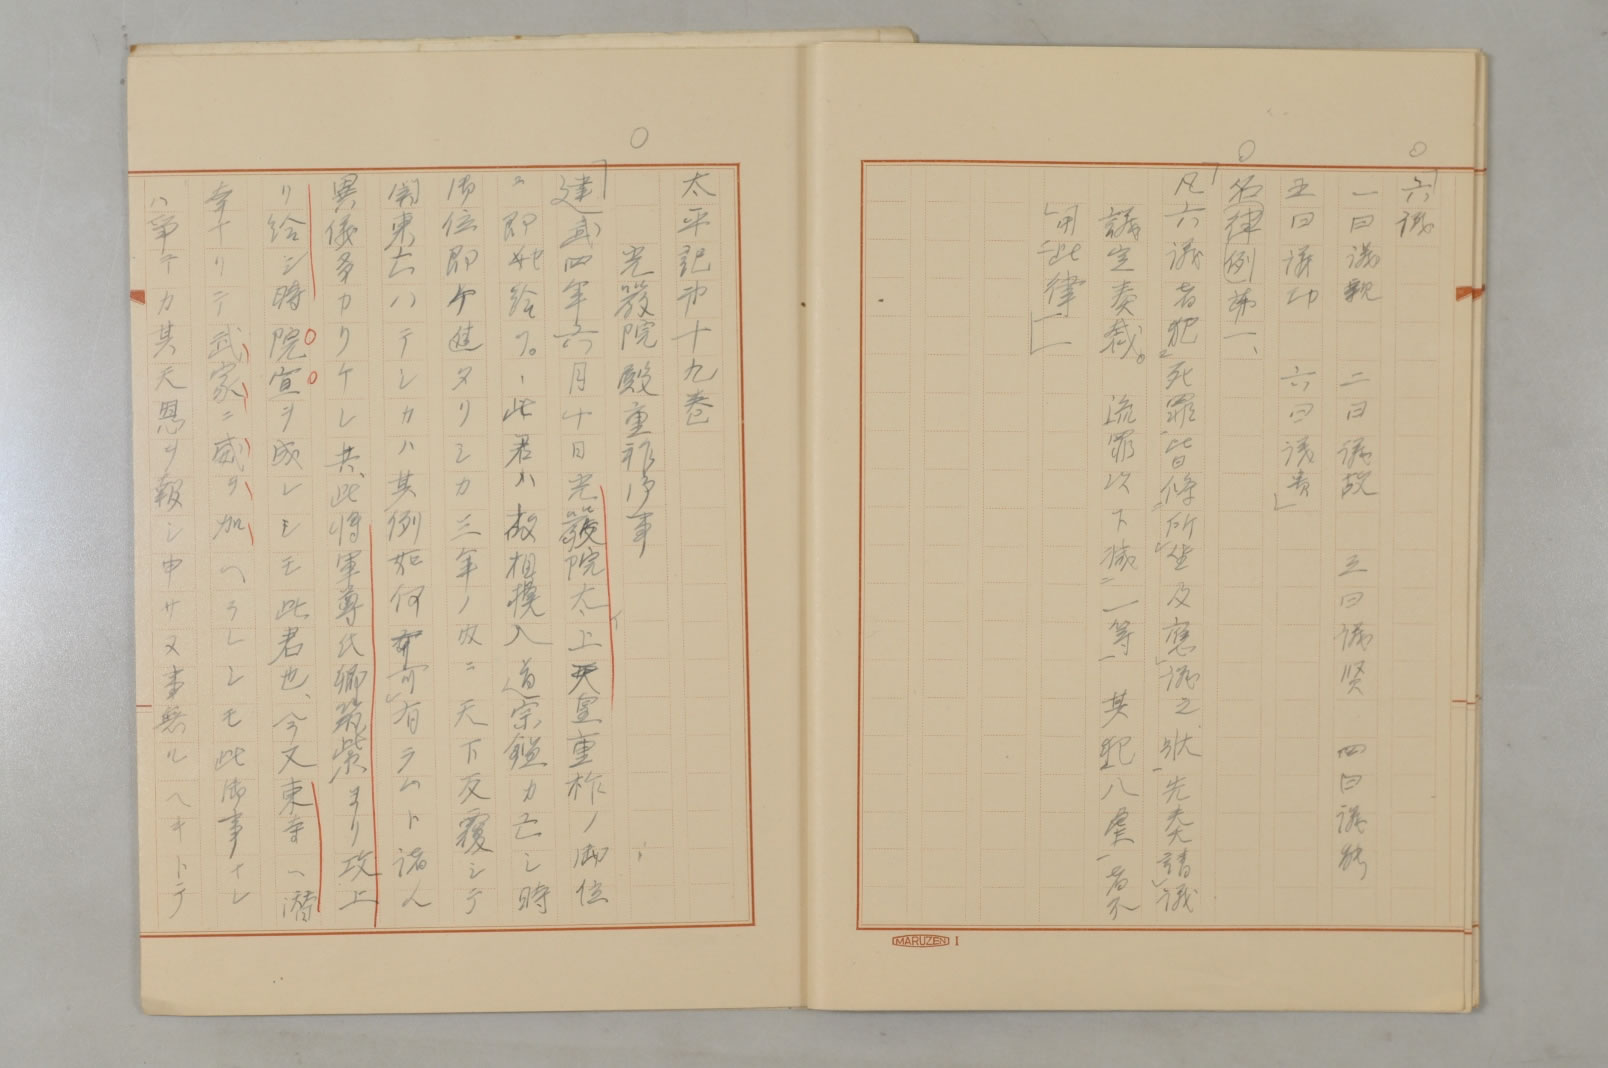 「六議
一曰議親　二曰議故　三曰議賢　四曰議能
五曰議功　六曰議貴」
名律例第一、
「凡六議者犯死罪皆條所坐及應議之状先奏請議
議定奏裁。流罪以下減二一等一其犯八虐一者不
用此律」
MARUZEN 1
太平記第十九巻
光厳院殿重祚御事
「建武四年六月十日光厳院太上天皇重祚ノ御位
ニ即カ給フ。此君ハ故相模入道宗鑑カ亡シ時
御位即ケ進タリシカ三年ノ内ニ天下反覆シテ
関東亡ハテシカハ其例如何可有ラムト諸人
異儀多カリケレ共、此将軍尊氏卿筑紫ヨリ攻上
リ給シ時院宣ヲ成レシモ此君也、今又東寺ヘ潜
幸ナリテ武家ニ威ヲ加ヘラレシモ此御事ナレ
ハ争テカ其天恩ヲ報シ申サヌ事無ルヘキトテ